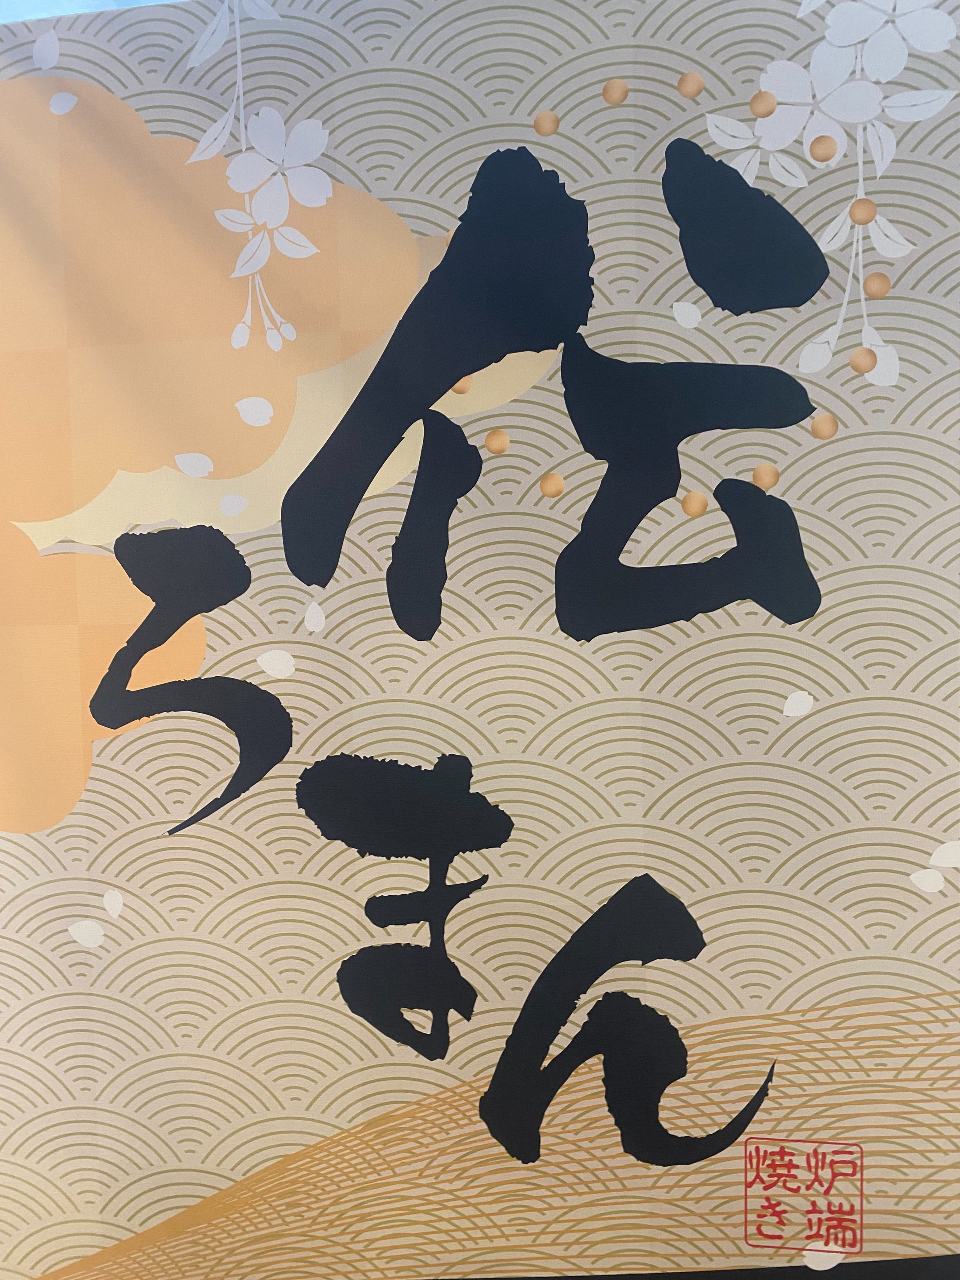 伝
ろまん
炉端
焼き